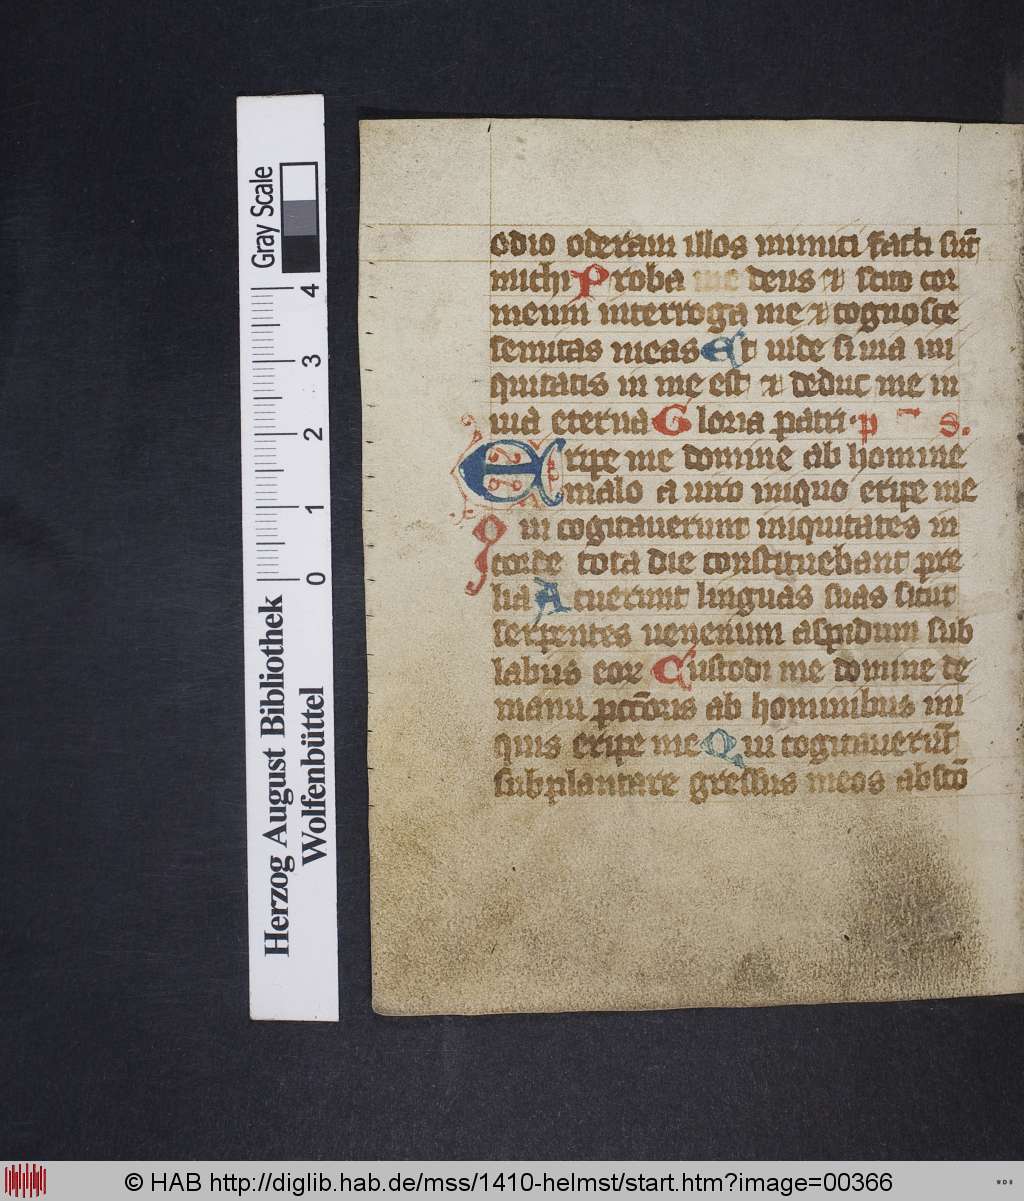 odio oderam illos inimici facti sūt
michi Proba me deus ⁊ scito cor
meum interroga me ⁊ cognosce
semitas meas Et uide si uia ini
quitatis in me est ⁊ deduc me in
uia eterna Gloria patri · p s.
Eripe me domine ab homine
malo a uiro iniquo eripe me
Qui cogitauerunt iniquitates in
corde tota die constituebant pre
lia Acuerunt linguas suas sicut
serpentes uenenum aspidum sub
labiis eoꝝ Custodi me domine de
manu pctōris ab hominibus ini
quis eripe me Qui cogitauerūt
subplantare gressus meos abscō
Gray Scale
0 1 2 3 4
Herzog August Bibliothek
Wolfenbüttel
© HAB http://diglib.hab.de/mss/1410-helmst/start.htm?image=00366